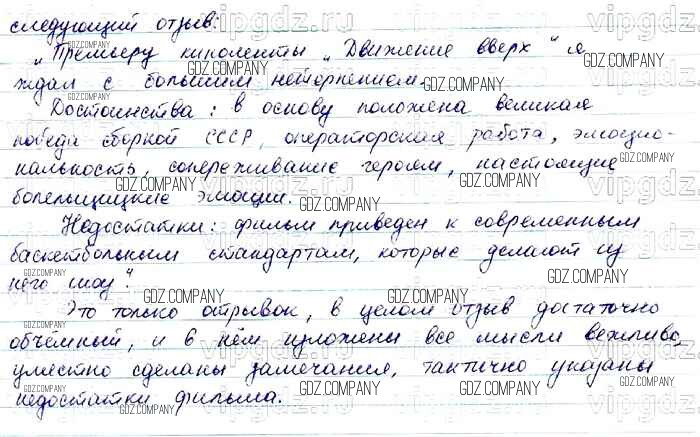 следующий отзыв:
„Премьеру киноленты „Движение вверх“ я
ждал с большим нетерпением.
Достоинства: в основу положена великая
победа сборной СССР, операторская работа, эмоцио-
нальность, сопереживание героям, настоящие
болельщицкие эмоции.
Недостатки: фильм приведен к современным
баскетбольным стандартам, которые делают из
него шоу“.
Это только отрывок, в целом отзыв достаточно
объемный, и в нём изложены все мысли вежливо,
уместно сделаны замечания, тактично указаны
недостатки фильма.